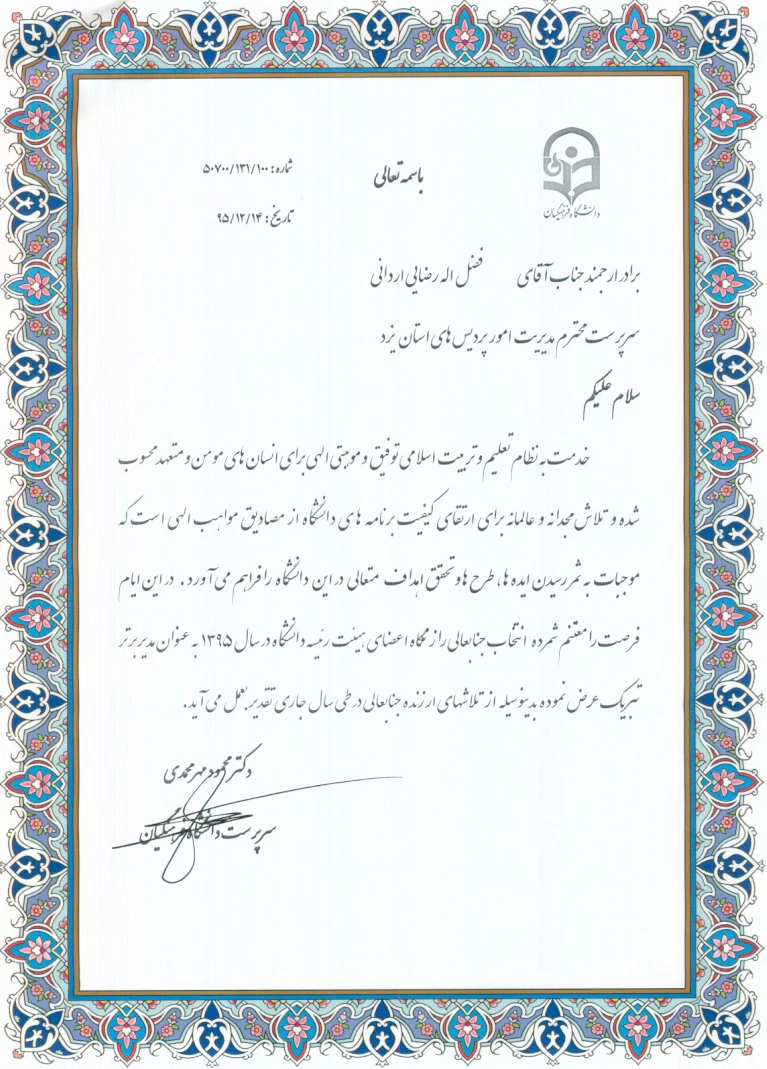 دانشگاه فرهنگیان
باسمه تعالی
شماره: ۵۰۷۰۰/۱۳۱/۱۰۰
تاریخ: ۹۵/۱۲/۱۴
برادر ارجمند جناب آقای فضل اله رضایی اردانی
سرپرست محترم مدیریت امور پردیس های استان یزد
سلام علیکم
خدمت به نظام تعلیم و تربیت اسلامی توفیق و موهبتی الهی برای انسان های مومن و متعهد محسوب
شده و تلاش مجدانه و عالمانه برای ارتقای کیفیت برنامه های دانشگاه از مصادیق مواهب الهی است که
موجبات به ثمر رسیدن ایده ها، طرح ها و تحقق اهداف متعالی در این دانشگاه را فراهم می آورد. در این ایام
فرصت را مغتنم شمرده انتخاب جنابعالی را از نگاه اعضای هیئت رئیسه دانشگاه در سال ۱۳۹۵ به عنوان مدیر برتر
تبریک عرض نموده بدینوسیله از تلاشهای ارزنده جنابعالی در طی سال جاری تقدیر بعمل می آید.
دکتر محمود مهرمحمدی
سرپرست دانشگاه فرهنگیان